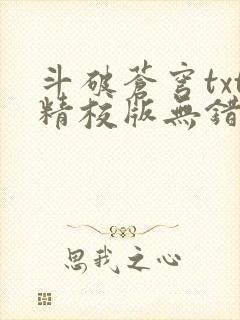 斗破蒼穹txt
精校版無錯
思我之心